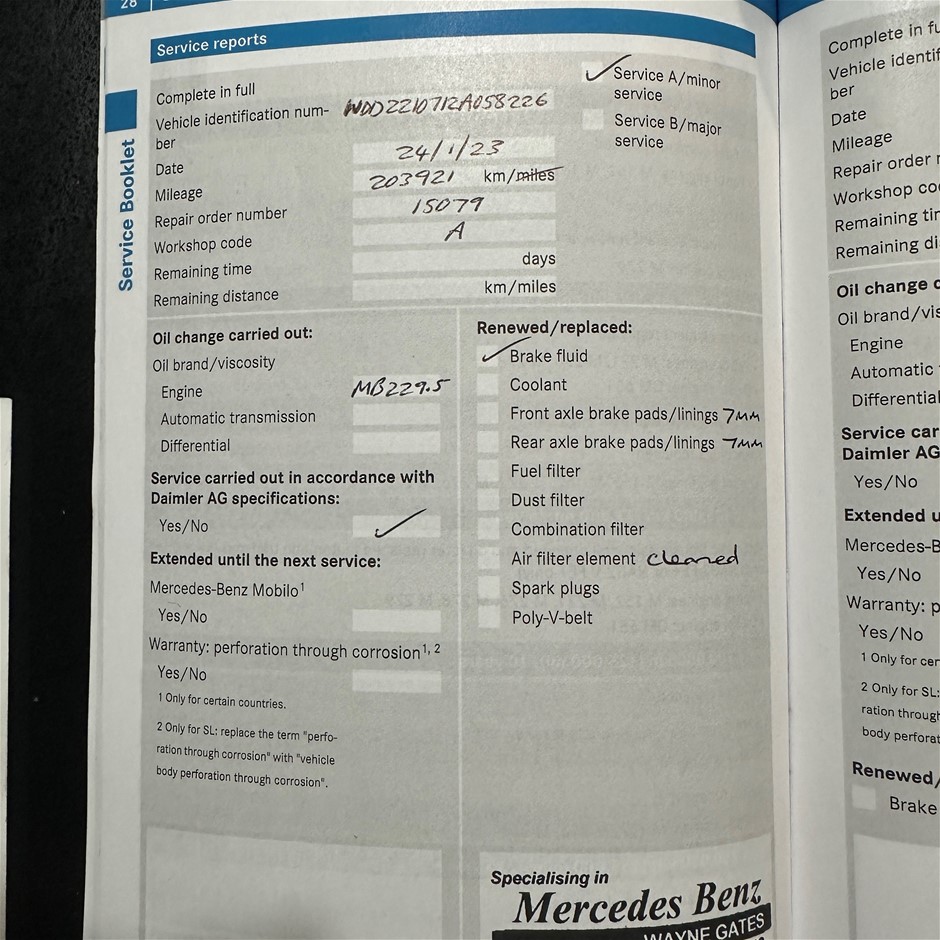 28
Service reports
Complete in full
Service A/minor
service
Vehicle identification num-
ber
WDD2210712A058226
Service B/major
service
Date 24/1/23
Mileage 203921 km/miles
Repair order number 15079
Workshop code A
Remaining time days
Remaining distance km/miles
Service Booklet
Oil change carried out:
Oil brand/viscosity
Engine MB229.5
Automatic transmission
Differential
Service carried out in accordance with
Daimler AG specifications:
Yes/No
Extended until the next service:
Mercedes-Benz Mobilo¹
Yes/No
Warranty: perforation through corrosion¹, ²
Yes/No
1 Only for certain countries.
2 Only for SL: replace the term "perfo-
ration through corrosion" with "vehicle
body perforation through corrosion".
Renewed/replaced:
Brake fluid
Coolant
Front axle brake pads/linings 7MM
Rear axle brake pads/linings 7MM
Fuel filter
Dust filter
Combination filter
Air filter element cleaned
Spark plugs
Poly-V-belt
Specialising in
Mercedes Benz
WAYNE GATES
Complete in fu
Vehicle identif
ber
Date
Mileage
Repair order n
Workshop co
Remaining tin
Remaining di
Oil change c
Oil brand/vis
Engine
Automatic
Differential
Service car
Daimler AG
Yes/No
Extended u
Mercedes-B
Yes/No
Warranty: p
Yes/No
1 Only for cer
2 Only for SL:
ration through
body perforat
Renewed/
Brake